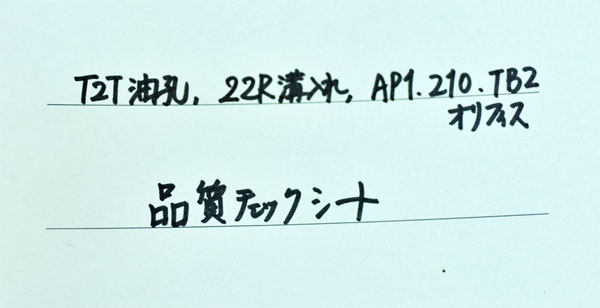 T2T油孔, 22R溝入れ, AP1.210.TB2
オリフィス
品質チェックシート